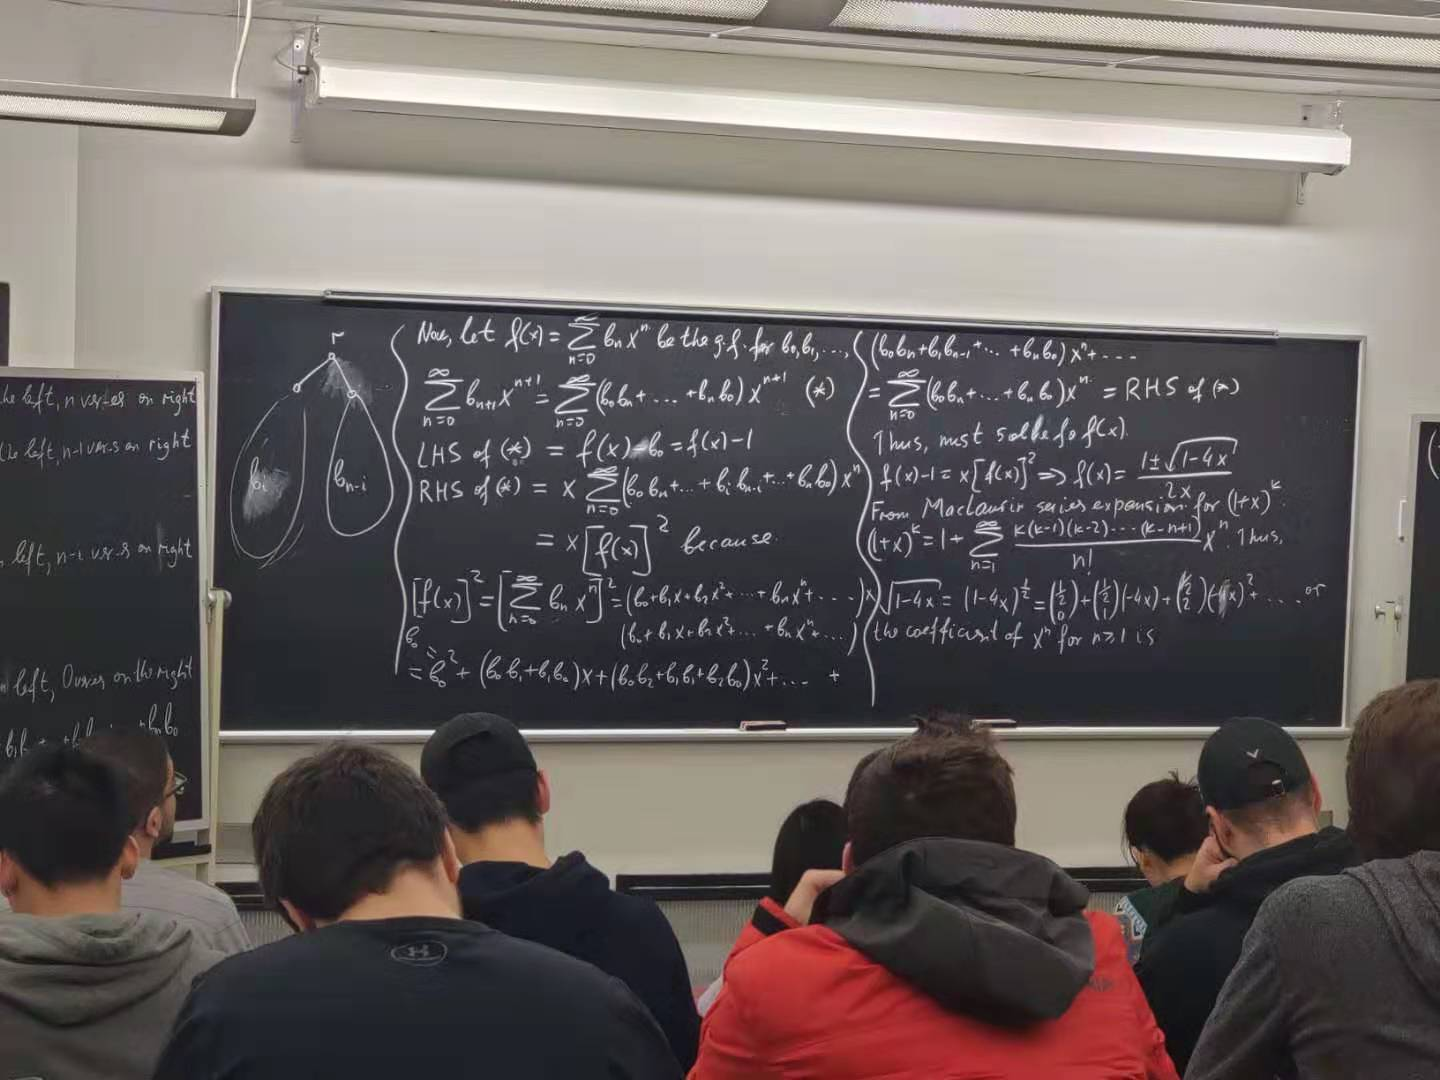 he left, n vertes on right
the left, n-1 vers on right
left, n-i vrs on right
left, 0 vrses on the right
r
b_i
b_{n-i}
Now, let f(x) = \sum_{n=0}^{∞} b_n x^n be the g.f. for b_0, b_1, ...,
\sum_{n=0}^{∞} b_{n+1} x^{n+1} = \sum_{n=0}^{∞} (b_0 b_n + ... + b_n b_0) x^{n+1} (*)
LHS of (*) = f(x) - b_0 = f(x) - 1
RHS of (*) = x \sum_{n=0}^{∞} (b_0 b_n + ... + b_i b_{n-i} + ... + b_n b_0) x^n
= x [f(x)]^2 because
[f(x)]^2 = [\sum_{n=0}^{∞} b_n x^n]^2 = (b_0 + b_1 x + b_2 x^2 + ... + b_n x^n + ...) x
(b_0 + b_1 x + b_2 x^2 + ... + b_n x^n + ...)
b_0 =
= b_0^2 + (b_0 b_1 + b_1 b_0) x + (b_0 b_2 + b_1 b_1 + b_2 b_0) x^2 + ... +
(b_0 b_n + b_1 b_{n-1} + ... + b_n b_0) x^n + ...
= \sum_{n=0}^{∞} (b_0 b_n + ... + b_n b_0) x^n = RHS of (*)
Thus, must solve for f(x).
f(x) - 1 = x [f(x)]^2 => f(x) = \frac{1 ± \sqrt{1-4x}}{2x}
From Maclaurin series expansion for (1+x)^k
(1+x)^k = 1 + \sum_{n=1}^{∞} \frac{k(k-1)(k-2)...(k-n+1)}{n!} x^n. Thus,
\sqrt{1-4x} = (1-4x)^{1/2} = \binom{1/2}{0} + \binom{1/2}{1} (-4x) + \binom{1/2}{2} (-4x)^2 + ... or
the coefficient of x^n for n ≥ 1 is